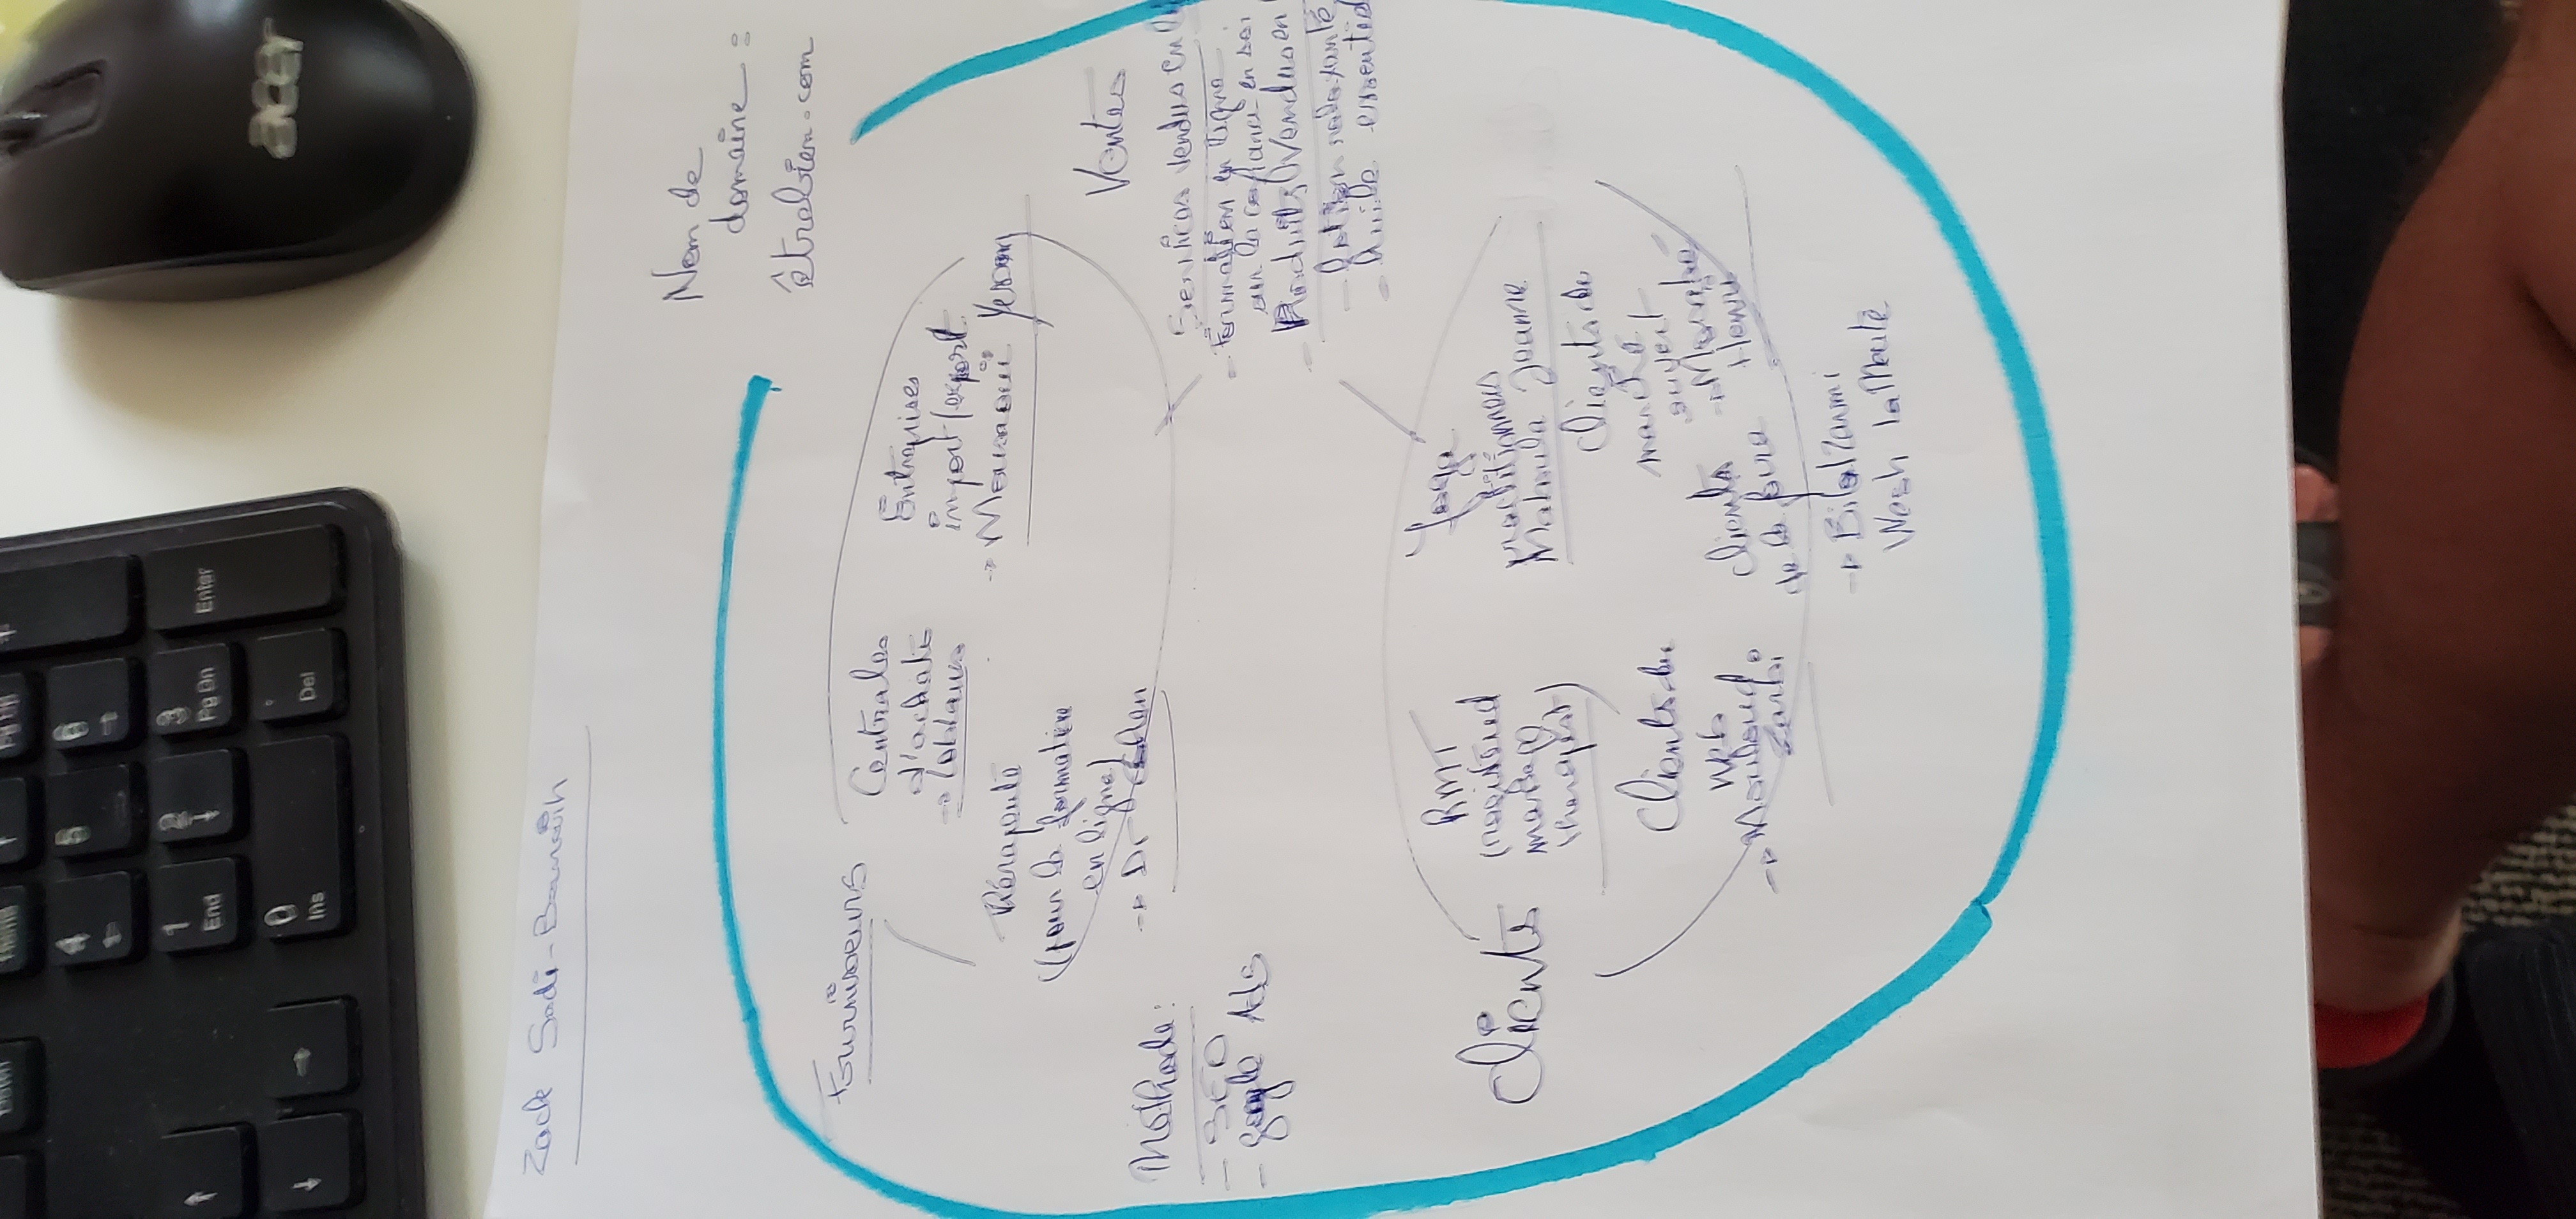 4
5
6
1
End
2
3
Pg Dn
Enter
0
Ins
Del
acer
Zack Sadi-
Nom de
domaine :
êtrebien.com
Fournisseurs
Centrales
d'achats
Entreprises
import/export
→ Yesom
Thérapeute
(pour la formation
en ligne)
→ Dr Cohen
Méthode:
- SEO
- google Ads
Ventes
Services vendus en
- Formation en ligne
sur la confiance en soi
- Produits vendus en
- lotion relaxante
- huile essentiel
Clients
RMT
(registered
massage
therapist)
Yoga
practitionners
Jeanne
Clients du
marché
ouvert
→
Henri
Clients du
web
→ Mouloud
Zarbi
clients
de la foire
→ Bilal Zarmi
Wesh laMeute